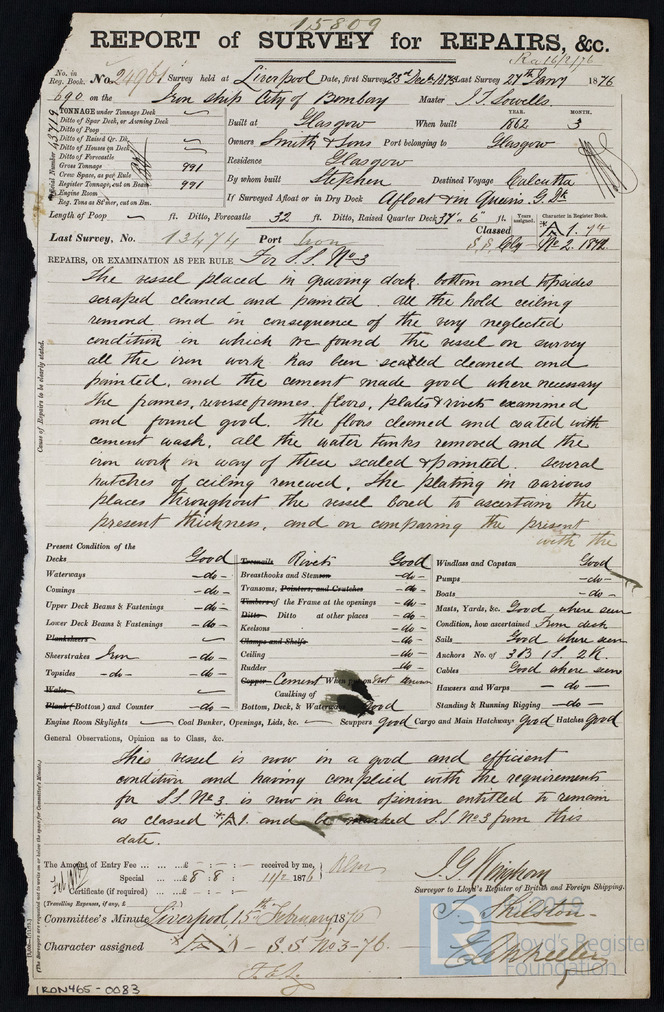 15809
REPORT of SURVEY for REPAIRS, &c.
No. in Reg. Book. No. 24961 Survey held at Liverpool Date, first Survey 23rd Decr 1875 Last Survey 27th Jany 1876
690 on the Iron ship City of Bombay Master J. T. Lowells
TONNAGE under Tonnage Deck
Ditto of Spar Deck, or Awning Deck
Ditto of Poop
Ditto of Raised Qr. Dk.
Ditto of Houses on Deck
Ditto of Forecastle
Gross Tonnage 991
Crew Space, as per Rule
Register Tonnage, cut on Beam 991
Engine Room
Reg. Tons as Steamer, cut on Bm.
Built at Glasgow When built YEAR. 1862 MONTH. 3
Owners Smith & Sons Port belonging to Glasgow
Residence Glasgow
By whom built Stephen Destined Voyage Calcutta
If Surveyed Afloat or in Dry Dock Afloat & in Queens G. Dk
Length of Poop ft. Ditto, Forecastle 32 ft. Ditto, Raised Quarter Deck 37" 6 ft. Years assigned. Character in Register Book.
Last Survey, No. 13474 Port Iron Classed A 1. 74
S.S. No 2. 1872
REPAIRS, OR EXAMINATION AS PER RULE For S.S. No 3
The vessel placed in graving dock. bottom and topsides
scraped cleaned and painted. all the hold ceiling
removed and in consequence of the very neglected
condition in which we found the vessel on survey
all the iron work has been scaled cleaned and
painted, and the cement made good where necessary
The frames, reverse frames, floors, plates & rivets examined
and found good. the floors cleaned and coated with
cement wash. all the water tanks removed and the
iron work in way of these scaled & painted. several
hatches of ceiling renewed. The plating in various
places throughout the vessel bored to ascertain the
present thickness, and on comparing the present
with the
Cause of Repairs to be clearly stated.
Present Condition of the
Decks Good
Waterways - do -
Comings - do -
Upper Deck Beams & Fastenings - do -
Lower Deck Beams & Fastenings - do -
Planksheers
Sheerstrakes Iron - do -
Topsides - do - - do -
Wales
Plank (Bottom) and Counter - do -
Treenails Rivets Good
Breasthooks and Stemson - do -
Transoms, Pointers, and Crutches - do -
Timbers of the Frame at the openings - do -
Ditto Ditto at other places - do -
Keelsons - do -
Clamps and Shelfs
Ceiling - do -
Rudder - do -
Copper Cement When put on Not known
Caulking of
Bottom, Deck, & Waterways Good
Windlass and Capstan Good
Pumps - do -
Boats - do -
Masts, Yards, &c. Good where seen
Condition, how ascertained From deck
Sails Good where seen
Anchors No. of 3 B 1 S. 2 K.
Cables Good where seen
Hawsers and Warps - do -
Standing & Running Rigging - do -
Engine Room Skylights Coal Bunker, Openings, Lids, &c. Scuppers good Cargo and Main Hatchways Good Hatches Good
General Observations, Opinion as to Class, &c.
This vessel is now in a good and efficient
condition and having complied with the requirements
for S.S. No 3. is now in our opinion entitled to remain
as classed A 1. and be marked S.S. No 3 from this
date.
The Amount of Entry Fee ... £ - : - : - received by me,
Special ... £ 8 : 8 : 11/2 1876
Certificate (if required) ... £ - : - : -
(Travelling Expenses, if any, £ )
J. G. Wingham
Surveyor to Lloyd's Register of British and Foreign Shipping.
Committee's Minute Liverpool 15th February 1876
T. Shilston
Character assigned A 1 - S.S. No 3 - 76.
Lloyd's Register
Foundation
IRON465-0083